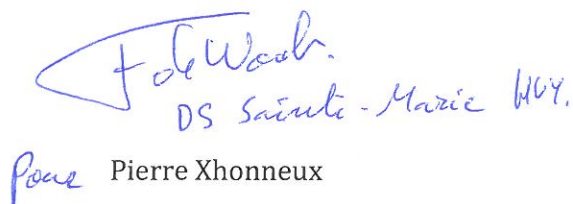 F. de Waele.
DS Sainte-Marie HUY.
Pour Pierre Xhonneux